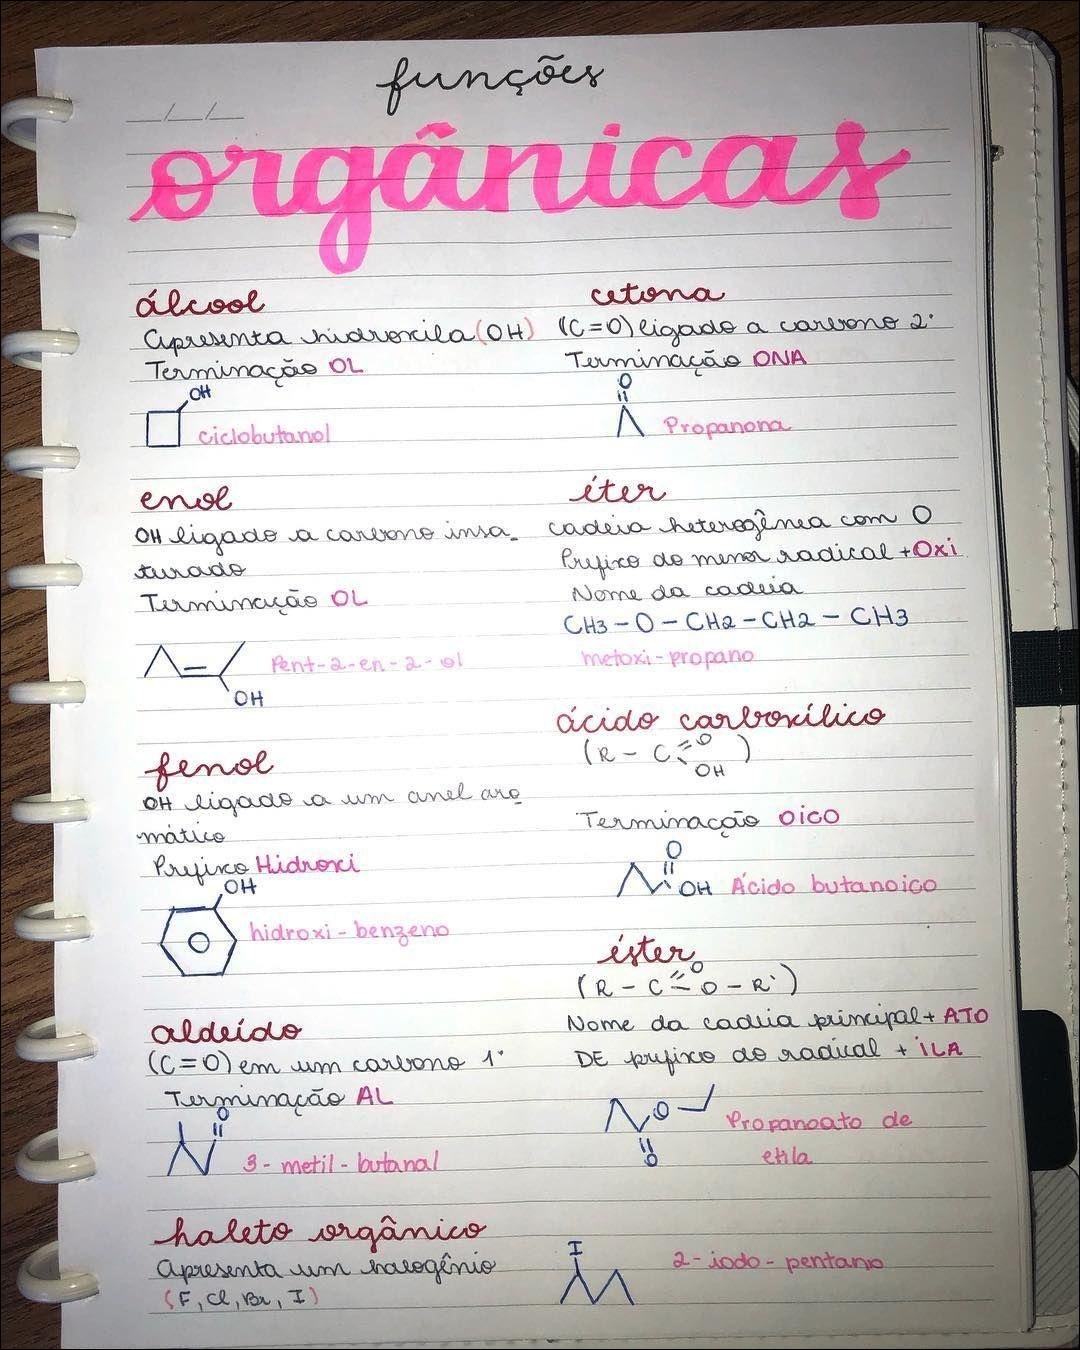 funções
__/__/__
orgânicas
álcool
Apresenta hidroxila (OH)
Terminação OL
OH
ciclobutanol
enol
OH ligado a carbono insa-
turado
Terminação OL
Pent-2-en-2-ol
OH
fenol
OH ligado a um anel aro
mático
Prefixo Hidroxi
OH
hidroxi-benzeno
aldeído
(C=O) em um carbono 1°
Terminação AL
O
3-metil-butanal
haleto orgânico
Apresenta um halogênio
(F, Cl, Br, I)
I
2-iodo-pentano
cetona
(C=O) ligado a carbono 2°
Terminação ONA
O
Propanona
éter
cadeia heterogênea com O
Prefixo do menor radical + Oxi
Nome da cadeia
CH3-O-CH2-CH2-CH3
metoxi-propano
ácido carboxílico
(R-C=O
OH)
Terminação OICO
O
OH Ácido butanoico
éster
O
(R-C=-O-R')
Nome da cadeia principal + ATO
DE prefixo do radical + iLA
O
Propanoato de
O
etila